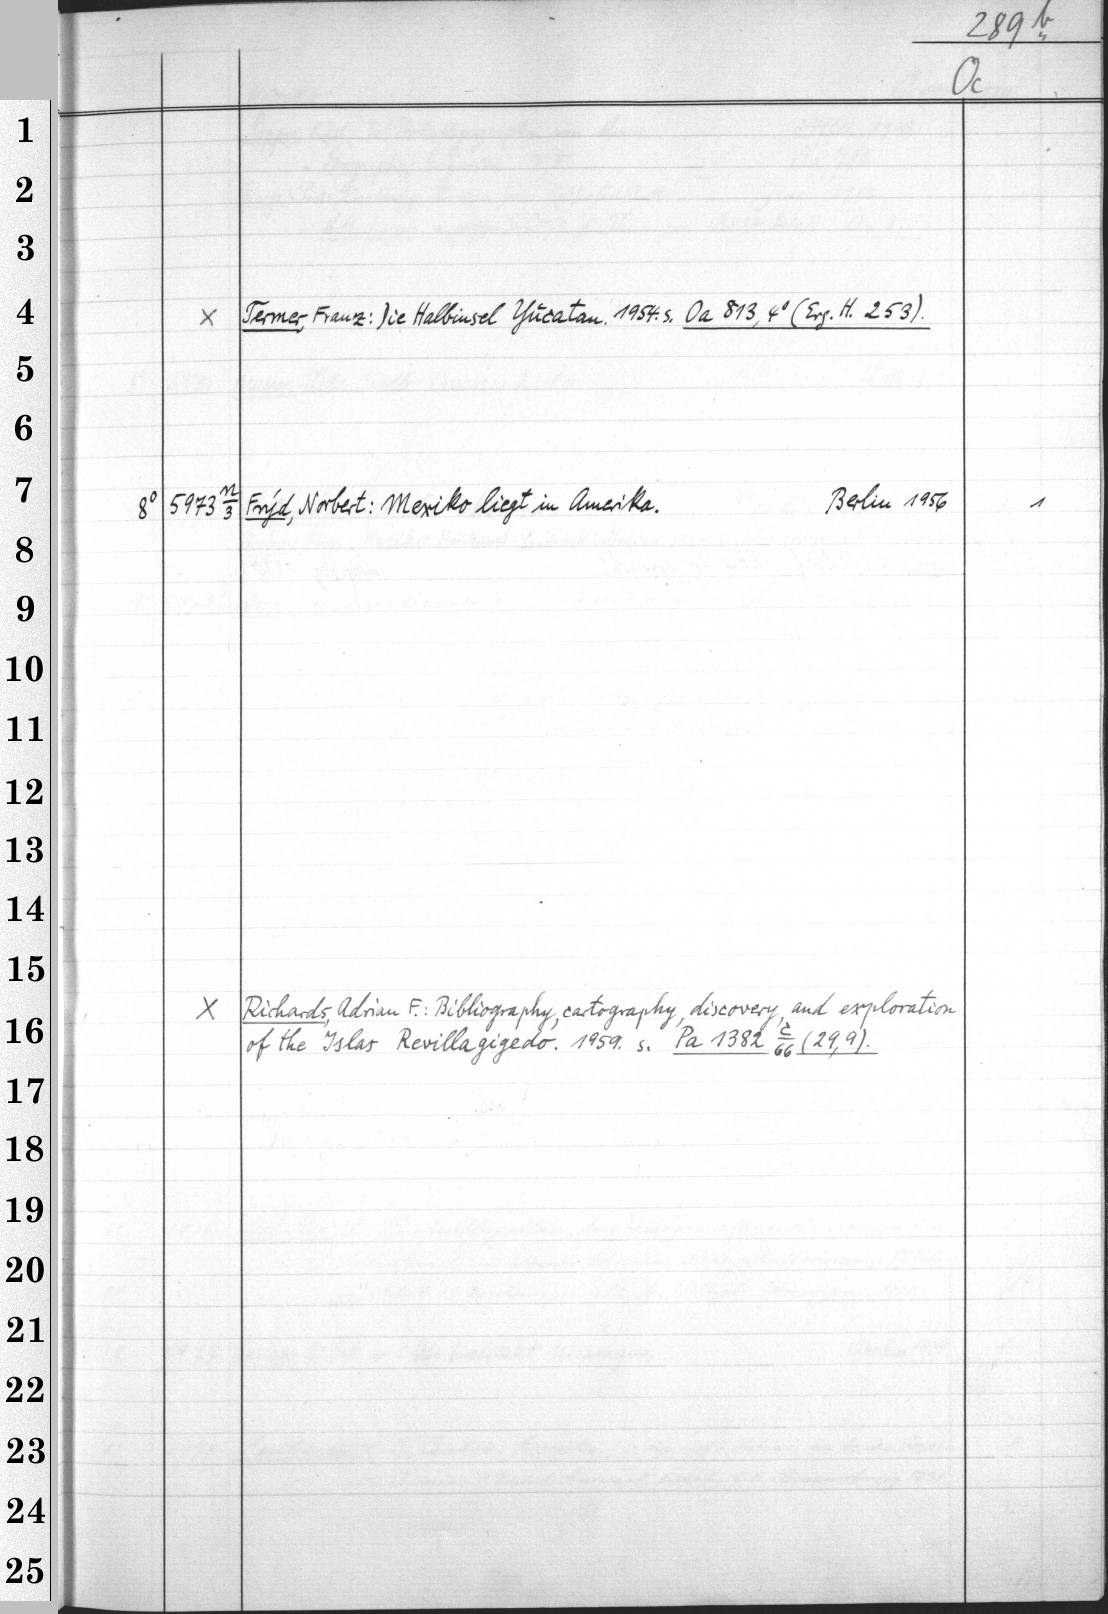 289 b
Oc
1
2
3
4
× Termer, Franz: Die Halbinsel Yucatan. 1954. s. Oa 813, 4° (Erg. H. 253).
5
6
7
8° 5973 n/3 Frýd, Norbert: Mexiko liegt in Amerika. Berlin 1956 1
8
9
10
11
12
13
14
15
× Richards, Adrian F.: Bibliography, cartography, discovery, and exploration
16
of the Islas Revillagigedo. 1959. s. Pa 1382 c/66 (29,9).
17
18
19
20
21
22
23
24
25